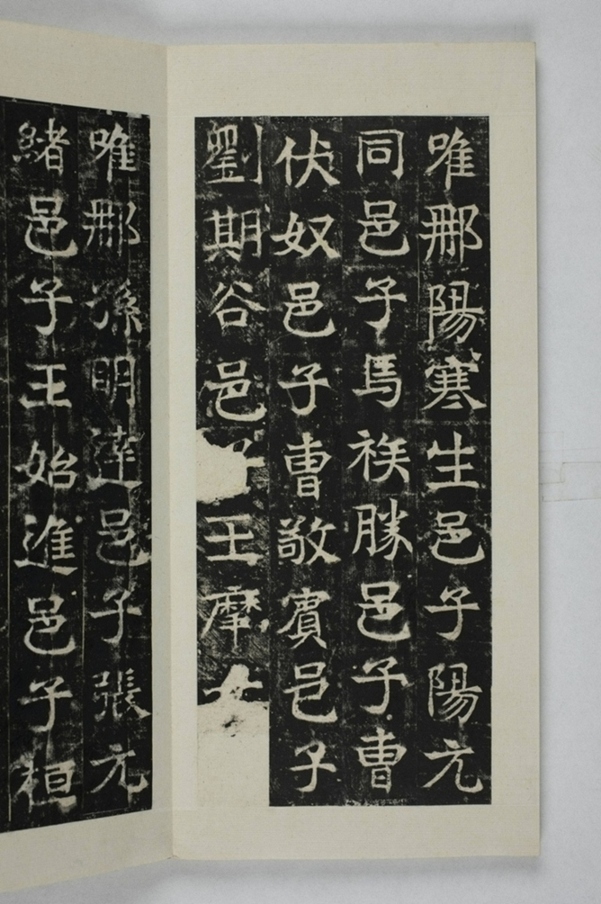 唯那陽寒生邑子陽元
同邑子馬族勝邑子曹
伏奴邑子曹敬賓邑子
劉期谷邑王摩
唯那孫明達邑子張元
緒邑子王始進邑子桓